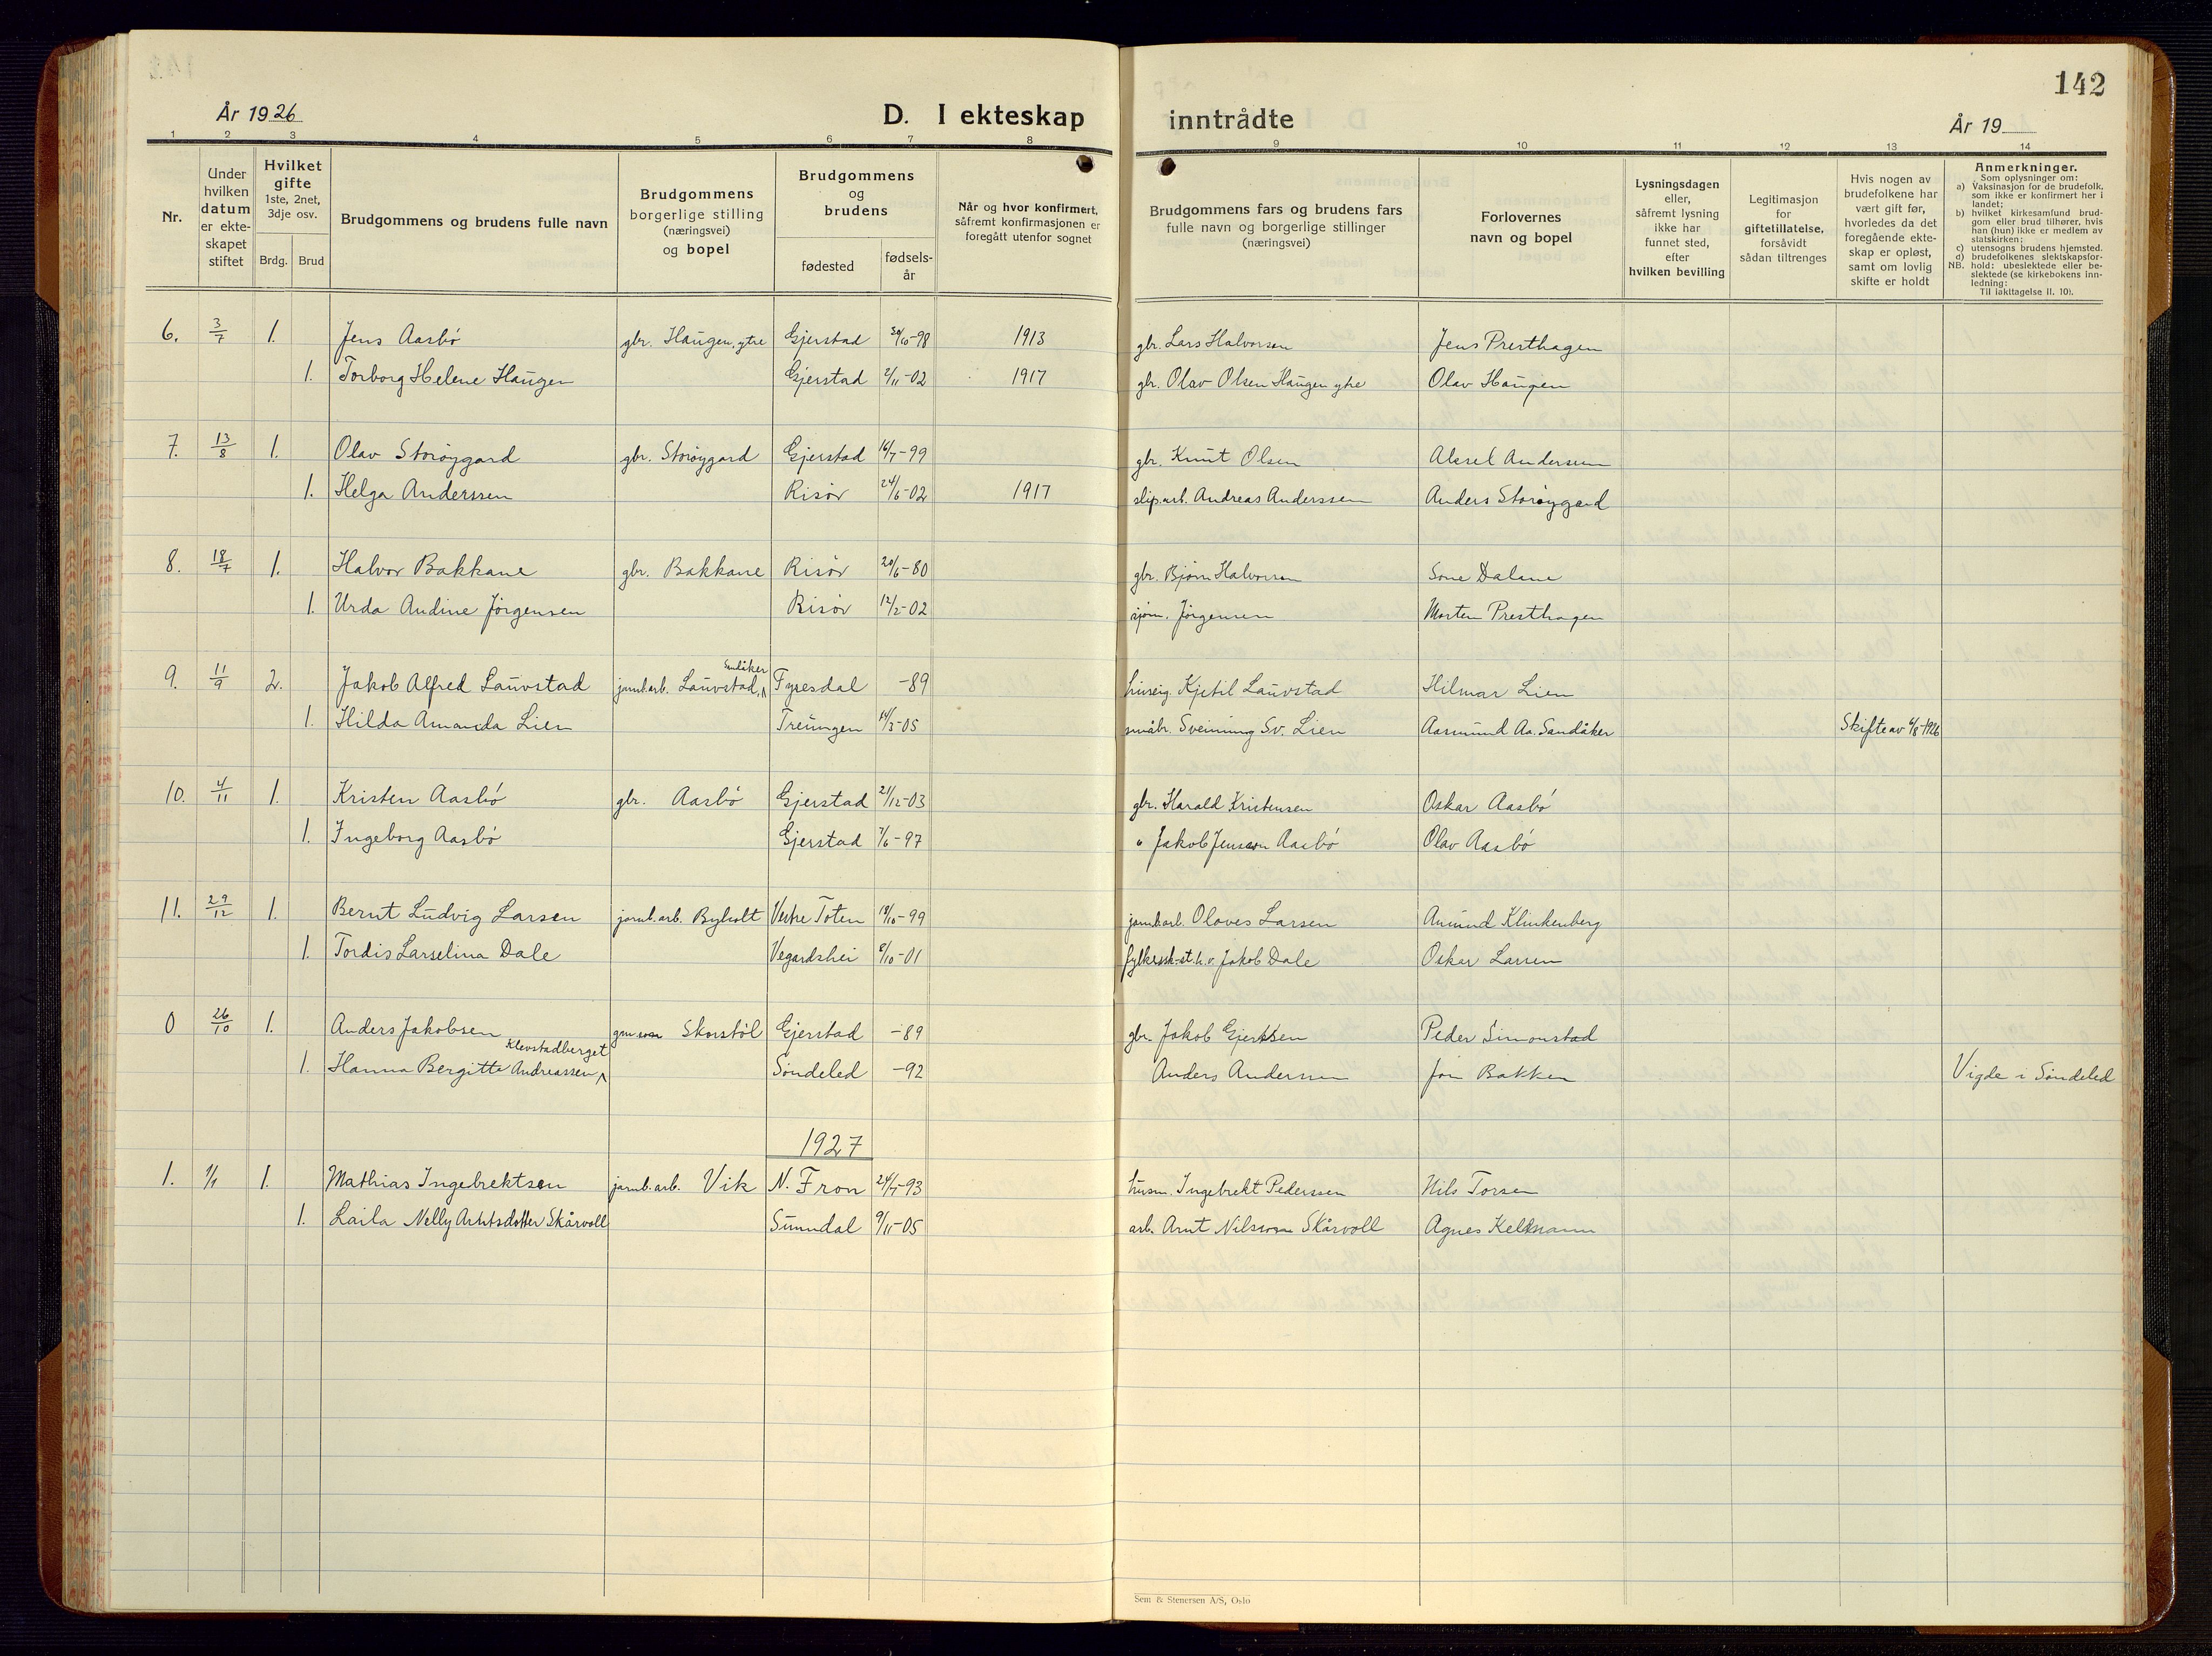 142
År 1926
D. I ekteskap inntrådte
År 19
1 2 3 4 5 6 7 8 9 10 11 12 13 14
Nr.
Under hvilken datum er ekte- skapet stiftet
Hvilket gifte 1ste, 2net, 3dje osv.
Brdg. Brud
Brudgommens og brudens fulle navn
Brudgommens borgerlige stilling (næringsvei) og bopel
Brudgommens og brudens
fødested
fødsels- år
Når og hvor konfirmert, såfremt konfirmasjonen er foregått utenfor sognet
Brudgommens fars og brudens fars fulle navn og borgerlige stillinger (næringsvei)
Forlovernes navn og bopel
Lysningsdagen eller, såfremt lysning ikke har funnet sted, efter hvilken bevilling
Legitimasjon for giftetillatelse, forsåvidt sådan tiltrenges
Hvis nogen av brudefolkene har vært gift før, hvorledes da det foregående ekte- skap er opløst, samt om lovlig skifte er holdt
Anmerkninger.
Som oplysninger om:
a) Vaksinasjon for de brudefolk, som ikke er konfirmert her i landet;
b) hvilket kirkesamfund brud- gom eller brud tilhører, hvis han (hun) ikke er medlem av statskirken;
c) utensogns brudens hjemsted.
d) brudefolkenes slektskapsfor- hold: ubeslektede eller be- slektede (se kirkebokens inn- ledning:
NB.
Til iakttagelse II. 10).
6. 3/7 1. Jens Aasbø gbr. Haugen, ytre Gjerstad 30/10-98 1913 gbr. Lars Halvorsen Jens Presthagen
1. Torborg Helene Haugen Gjerstad 2/11-02 1917 gbr. Olav Olsen Haugen ytre Olav Haugen
7. 13/8 1. Olav Storøygard gbr. Storøygard Gjerstad 16/7-99 gbr. Knut Olsen Aksel Andersen
1. Helga Anderssen Risør 24/6-02 1917 slip.arb. Andreas Anderssen Anders Storøygard
8. 18/7 1. Halvor Bakkane gbr. Bakkane Risør 20/6-80 gbr. Bjørn Halvorsen Sone Dalane
1. Urda Andine Jørgensen Risør 12/2-02 sjøm. Jørgensen Morten Presthagen
9. 11/9 2. Jakob Alfred Lauvstad jarnb.arb. Lauvstad, Sandåker Fyresdal -89 huseig. Kjetil Lauvstad Hilmar Lien
1. Hilda Amanda Lien Treungen 14/3-05 småbr. Sveinung Sv. Lien Aasmund Aa. Sandåker Skifte av 6/8-1926
10. 4/11 1. Kristen Aasbø gbr. Aasbø Gjerstad 21/12-03 gbr. Harald Kristensen Oskar Aasbø
1. Ingeborg Aasbø Gjerstad 7/6-97 " Jakob Jensson Aasbø Olav Aasbø
11. 29/12 1. Bernt Ludvig Larsen jarnb.arb. Byholt Vestre Toten 18/10-99 jarnb.arb. Olaves Larsen Amund Klinkenberg
1. Tordis Larselina Dale Vegardshei 6/10-01 Jakob Dale Oskar Larsen
0 26/10 1. Anders Jakobsen Skorstøl Gjerstad -89 gbr. Jakob Gjertsen Peder Simonstad
1. Hanna Bergitte Andreassen, Klevstadberget Søndeled -92 Anders Andersen Jon Bakken Vigde i Søndeled
1927
1. 1/1 1. Mathias Ingebrektsen jarnb.arb. Vik N. Fron 24/7-93 husm. Ingebrekt Pederssen Nils Torsen
1. Laila Nelly Arntsdotter Skårvoll Sunndal 9/11-05 arb. Arnt Nilsson Skårvoll Agnes
Sem & Stenersen A/S, Oslo